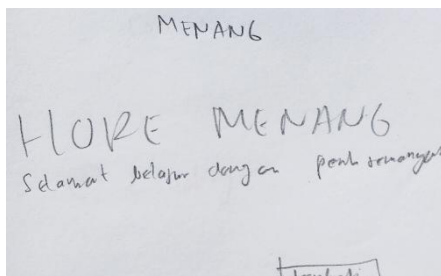 MENANG
HORE MENANG
Selamat belajar dengan penh semangat